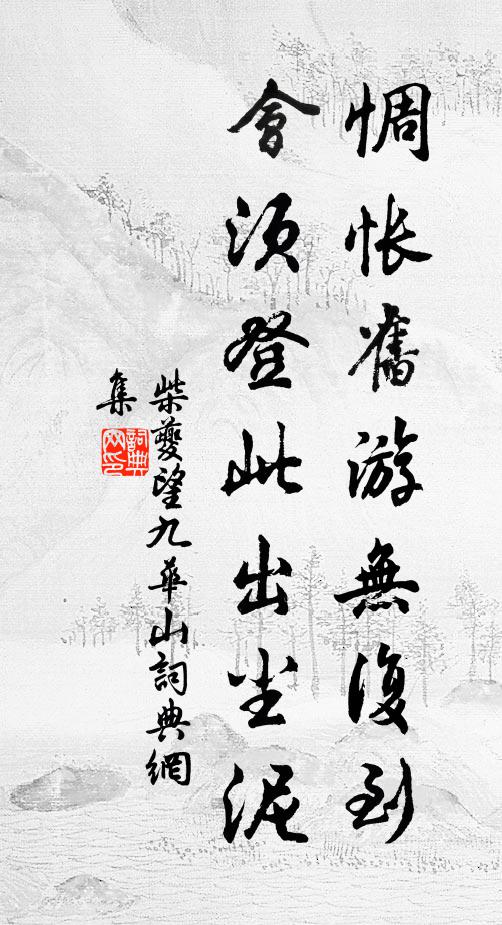 惆悵舊游無復到
會須登此出尘泥
柴夔望九華山詞典網
集
詞典
网印